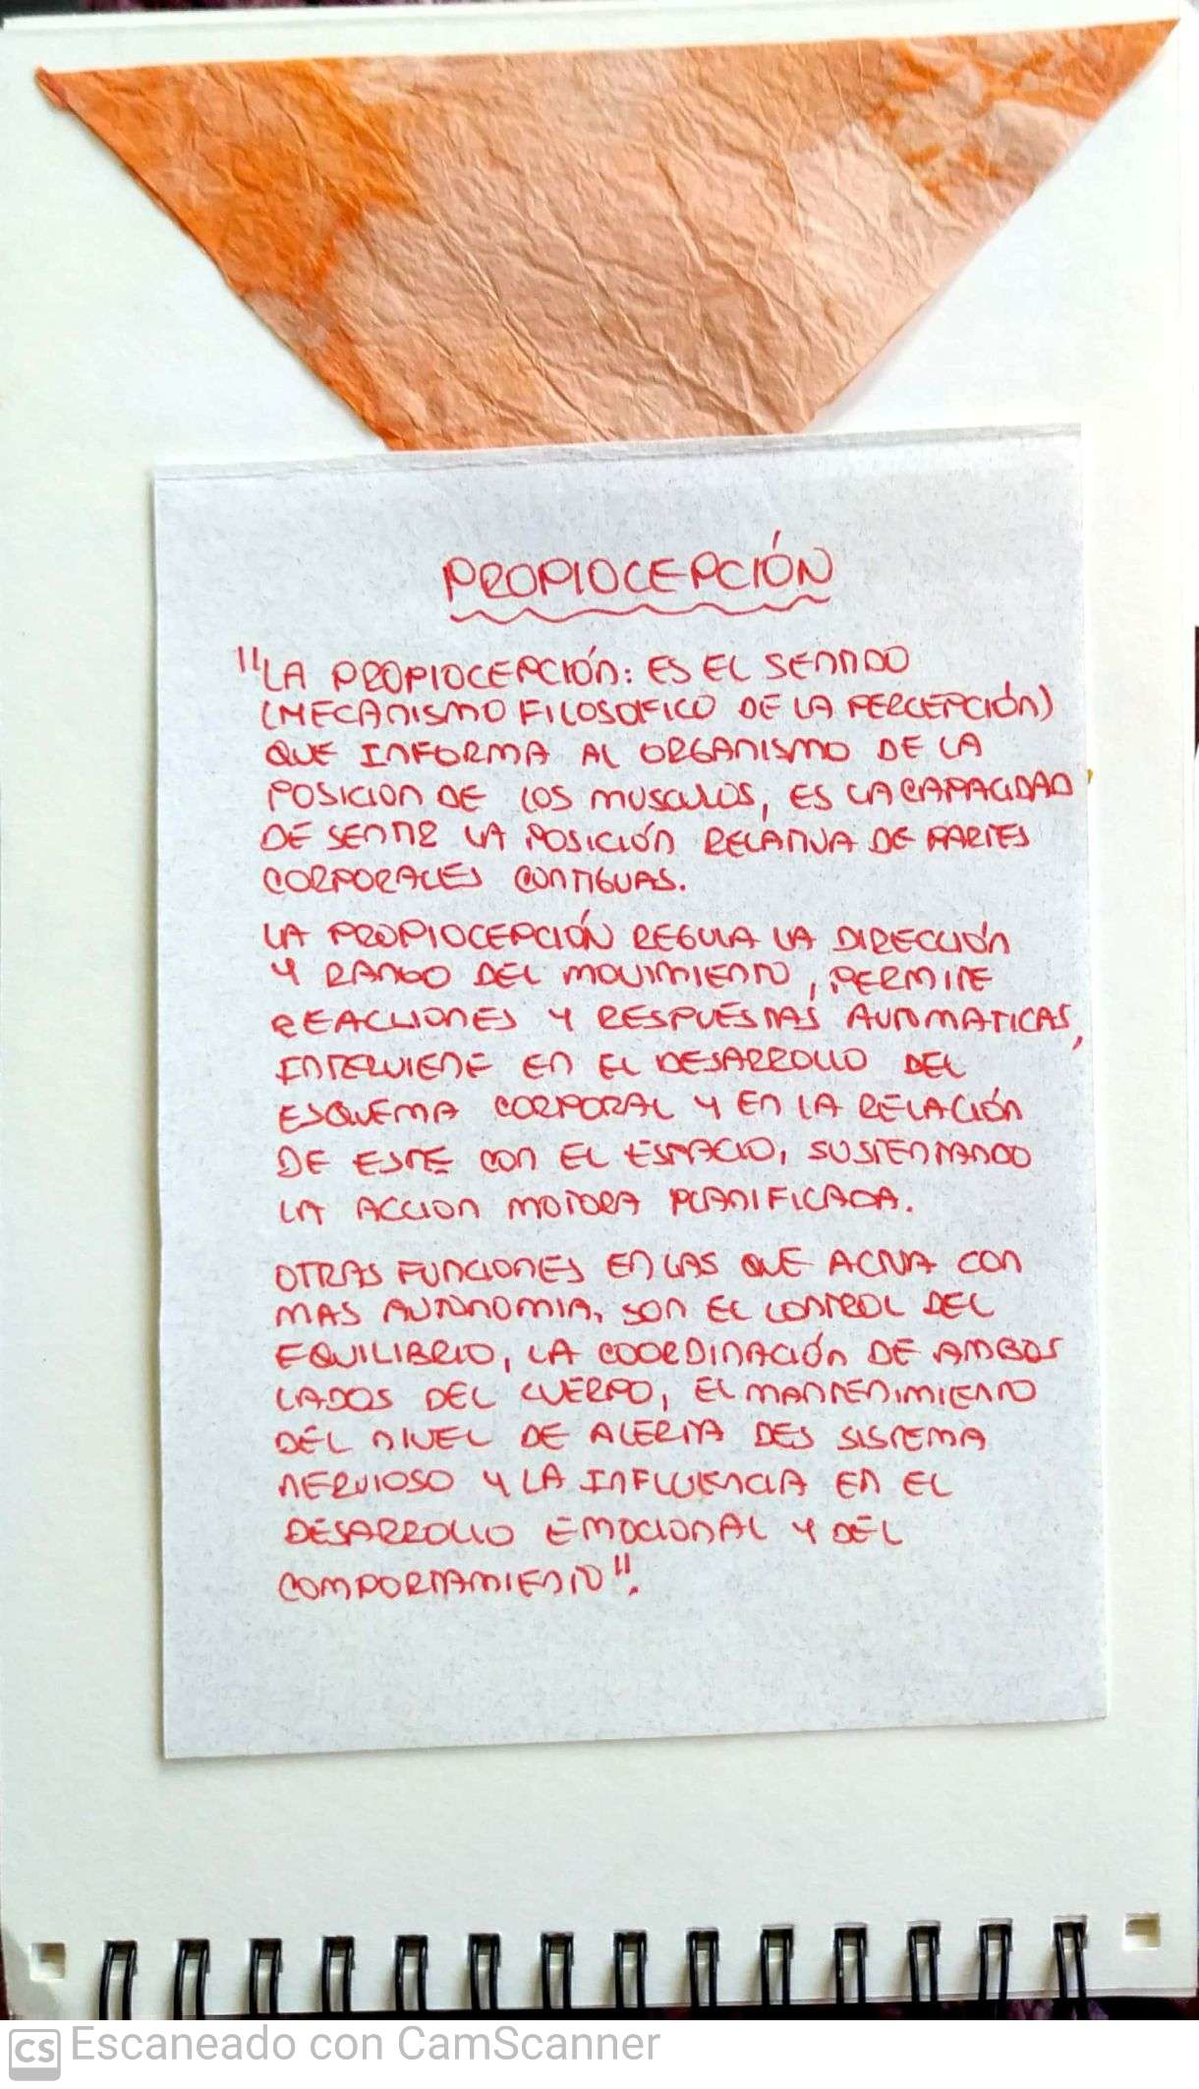 PROPIOCEPCIÓN
"LA PROPIOCEPCIÓN: ES EL SENTIDO
(MECANISMO FILOSOFICO DE LA PERCEPCIÓN)
QUE INFORMA AL ORGANISMO DE LA
POSICION DE LOS MUSCULOS, ES LA CAPACIDAD
DE SENTIR LA POSICIÓN RELATIVA DE PARTES
CORPORALES CONTIGUAS.
LA PROPIOCEPCIÓN REGULA LA DIRECCIÓN
Y RANGO DEL MOVIMIENTO, PERMITE
REACCIONES Y RESPUESTAS AUTOMATICAS,
INTERVIENE EN EL DESARROLLO DEL
ESQUEMA CORPORAL Y EN LA RELACIÓN
DE ESTE CON EL ESPACIO, SUSTENTANDO
LA ACCION MOTORA PLANIFICADA.
OTRAS FUNCIONES EN LAS QUE ACTUA CON
MAS AUTONOMIA, SON EL CONTROL DEL
EQUILIBRIO, LA COORDINACIÓN DE AMBOS
LADOS DEL CUERPO, EL MANTENIMIENTO
DEL NIVEL DE ALERTA DES SISTEMA
NERVIOSO Y LA INFLUENCIA EN EL
DESARROLLO EMOCIONAL Y DEL
COMPORTAMIENTO".
CS Escaneado con CamScanner